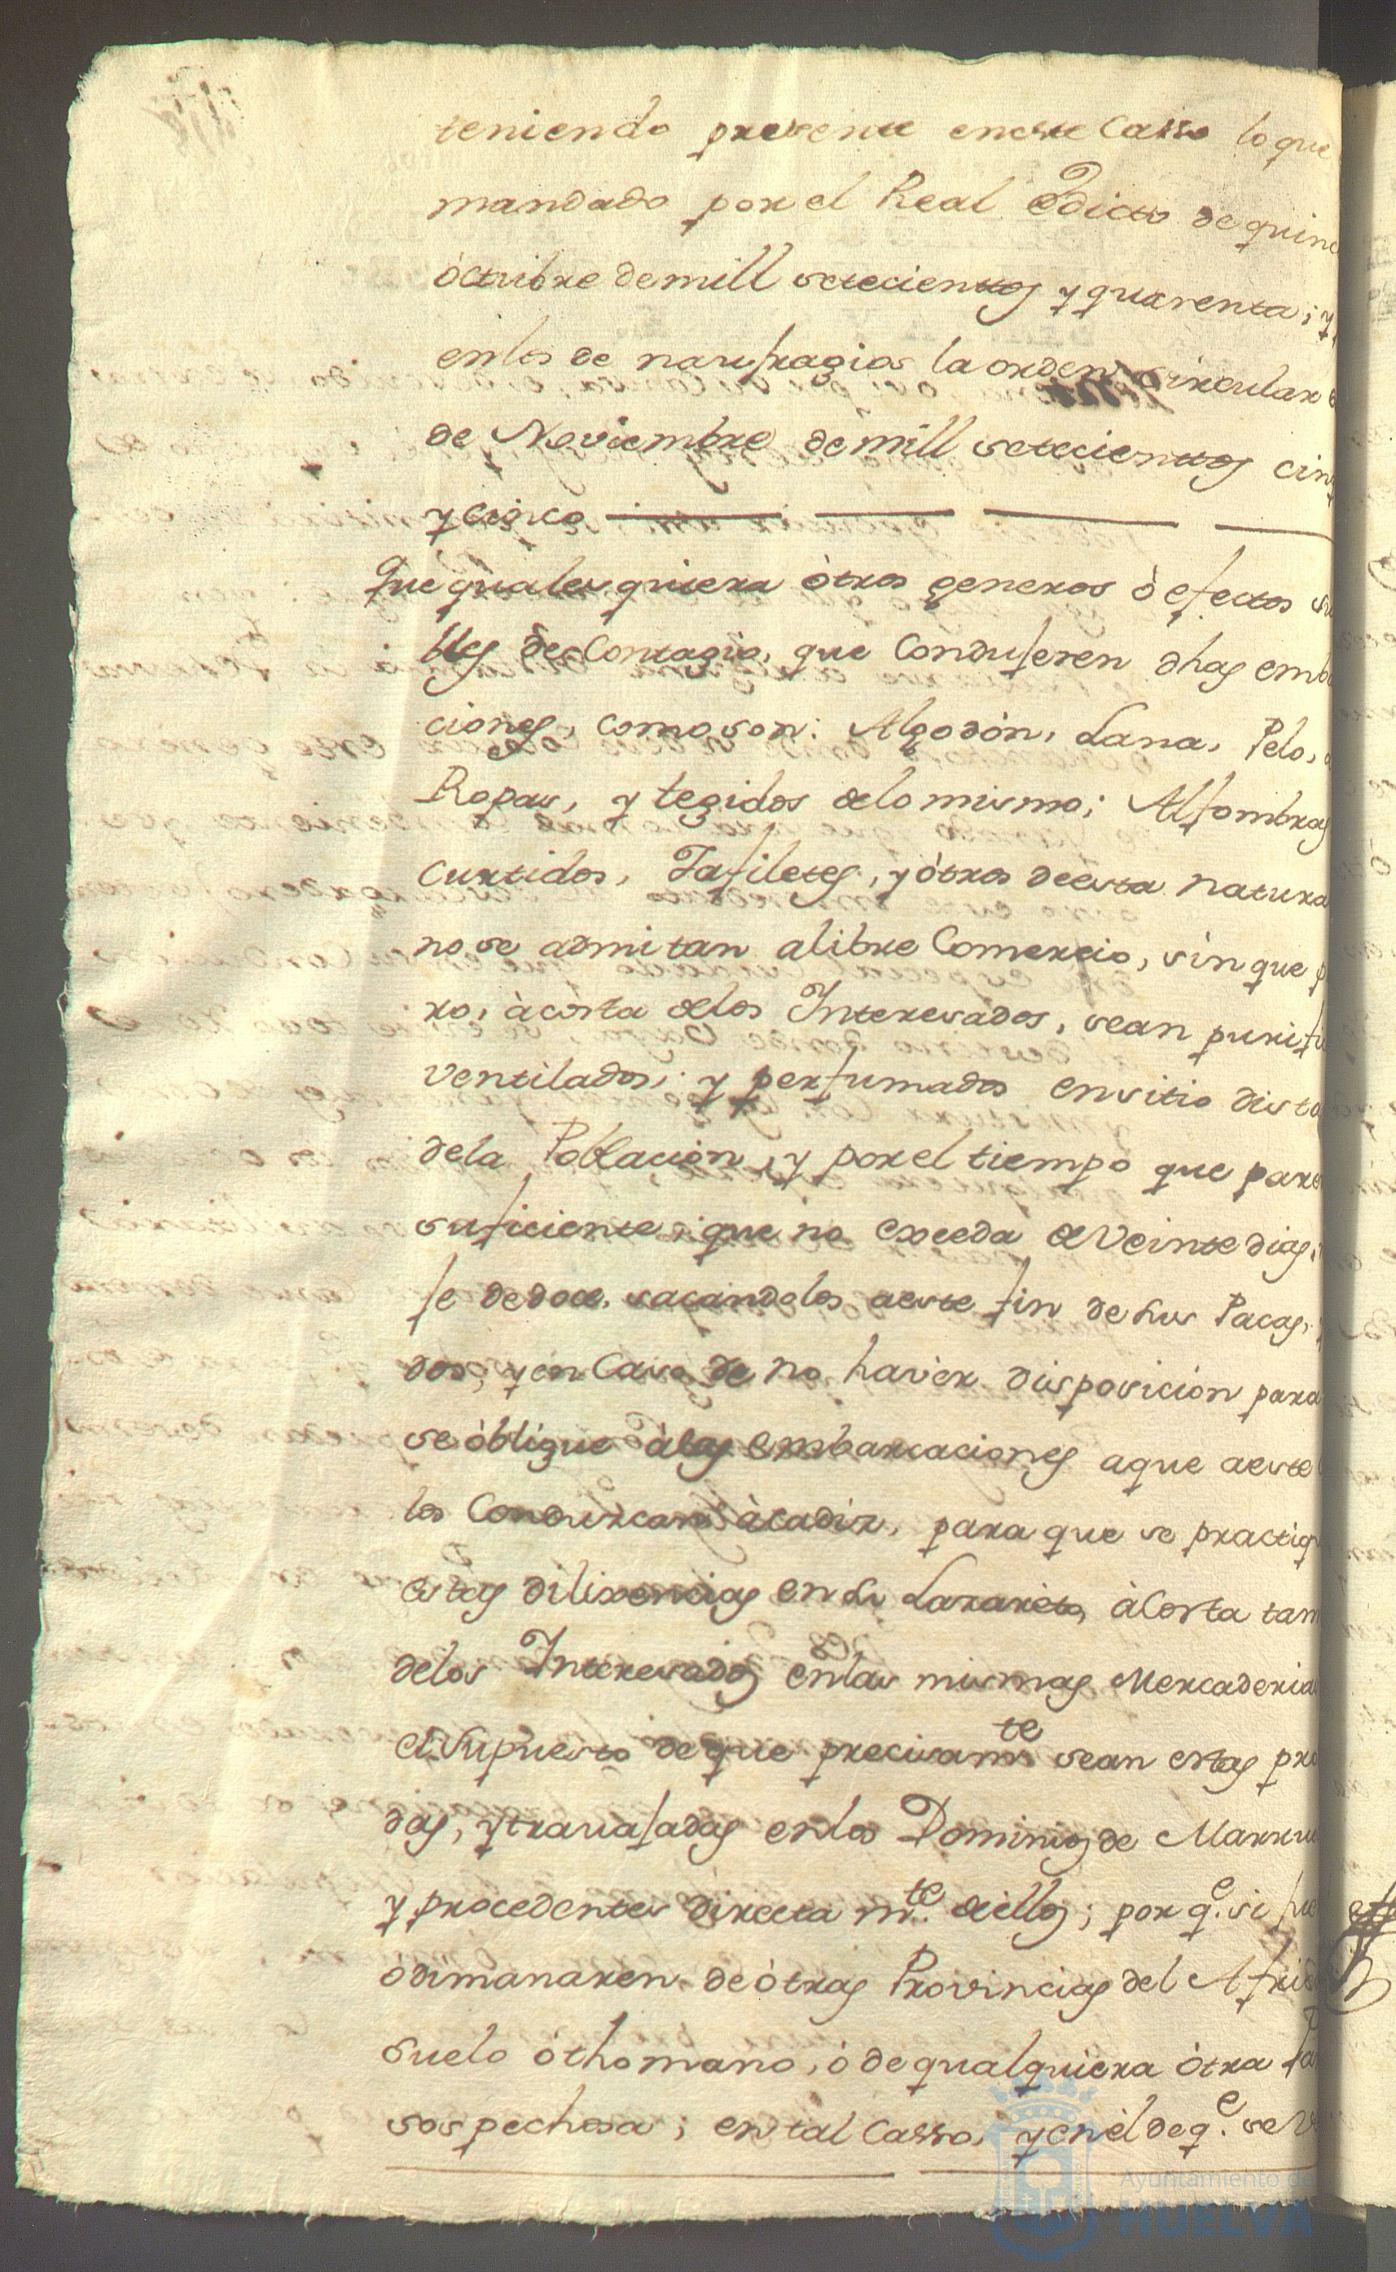 teniendo presente eneste Casso lo que
mandado por el Real Edicto de quinc
òctubre de mill setecientos y quarenta; y
enlos de naufragios la orden circular
de Noviembre de mill setecientos cinq
y cinco
Que quales quiera òtros generos ò efectos su
bles de Contagio, que Condujeren dhas emb
ciones, como son: Algodòn, Lana, Pelo,
Ropas, y tegidos delo mismo; Alfombras
Curtidos, Tafiletes, y òtros deesta natura
no se admitan a libre Comercio, sin que p
ro, àcosta delos Interesados, sean purifi
Ventilados, y perfumados ensitio dista
dela Poblacion, y por el tiempo que pare
suficiente, que no exceda de Veinte dias;
je de doce, sacandolos aeste fin de sus Pacas,
dos, y en Caso de no havèr disposiciòn para
se òbligue àlas embarcaciones aque aeste
los Conduzcan àcadiz, para que se practiq
estas dilixencias en su Lazareto, àCosta tam
delos Interesados enlas mismas Mercaderia
el Supuesto de que precisamte sean estas pro
das, y travajadas enlos Dominios de Marru
y procedentes directa mte. de ellos; por qe. si fue
ò dimanaren de òtras Provincias del Afric
suelo òthomano, ò de qualquiera òtra
sospechosa; en tal Casso, y en èl de qe. se
Ayuntamiento de
HUELVA